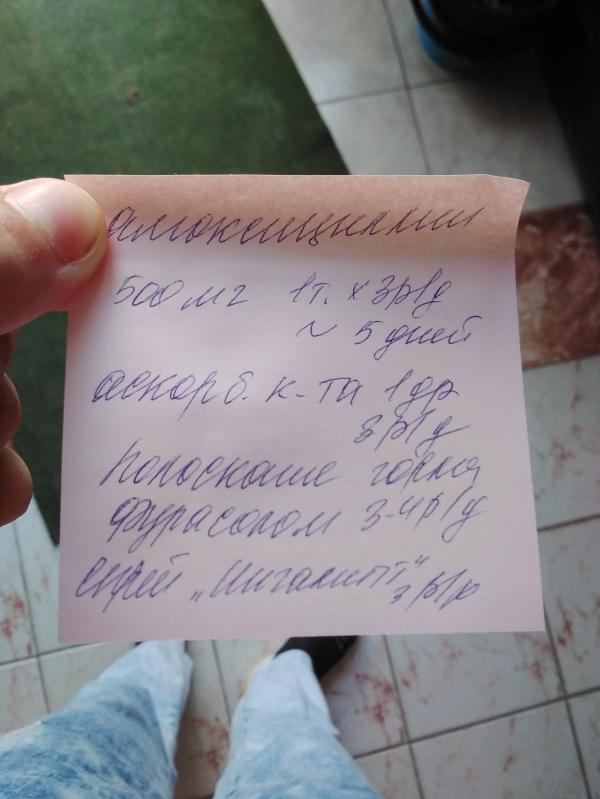 амоксициллин
500 мг 1т. х 3р/д
~ 5 дней
аскорб. к-та 1др
3р/д
Полоскание горла
фурасолом 3-4р/д
Спрей „Ингалипт"
3 р/д